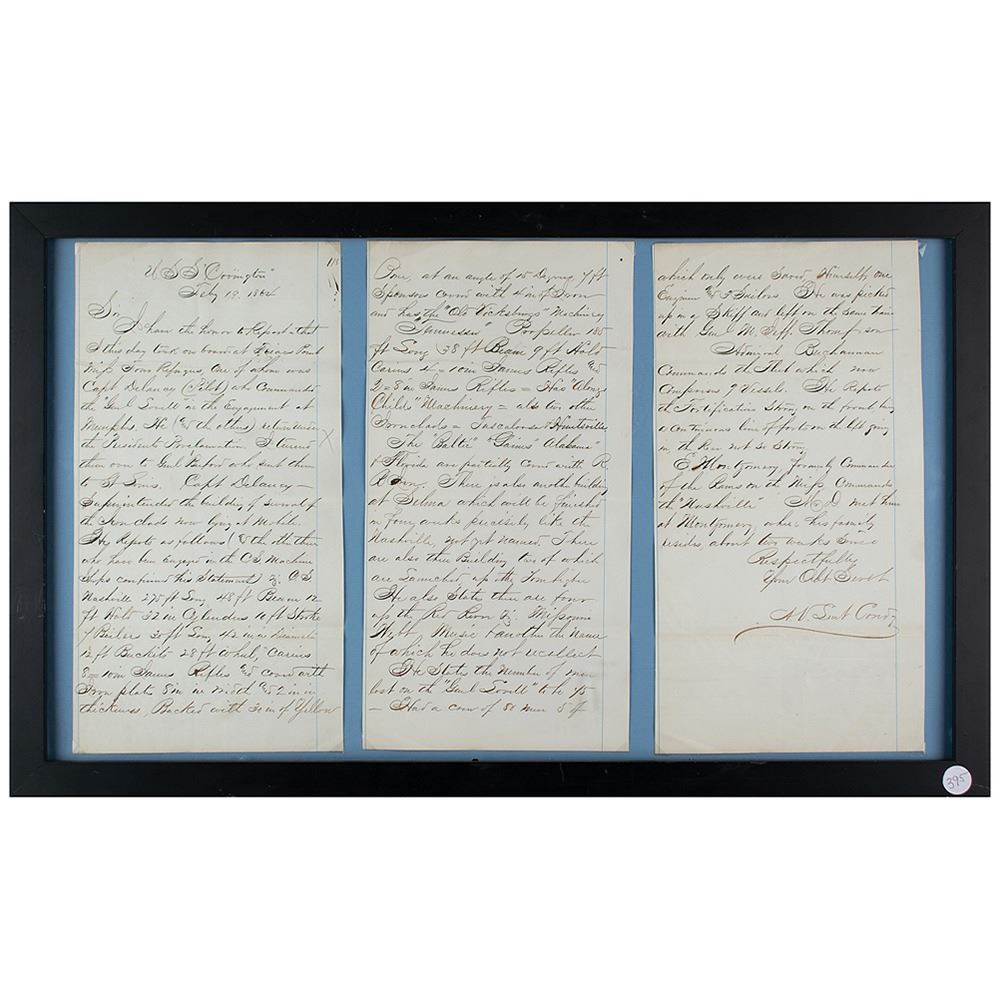 U. S. S. Covington"
Feby 12. 1864
Sir,
I have the honor to Report that
I this day took on board at Point
Miss Four Refugees, One of whom was
Capt Delancy (Pilot) who Commanded
the "Genl Lovell" in the Engagement at
Memphis. He (& the others) return under
the President's Proclamation I turned
them over to Genl Buford who sent them
to St Louis. Capt Delancy—
Superintended the building of several of
the Iron Clads now lying at Mobile.
He Reports as follows (& the other three
who have been Engaged in the C.S. Machine
Shops confirmed his Statement) Viz: C.S.
Nashville 275 ft Long 48 ft Beam 12
ft Hold 32 in Cylenders 11 ft Stroke
7 Boiler 30 ft Long, 42 in in Diameter
12 ft Buckets 28 ft Wheel, Carries
8 = 10 in James Rifles & cover with
Iron plate 8 in in Width & 2 in in
thickness, Backed with in of Yellow
Pine, at an angle of 15 Degrees 7 ft
Sponsons coverd with 4 in of Iron
and has the "Old Vicksburgs" Machinery
Tennessee" Propeller 180
ft Long (38 ft Beam 9 ft Hold
Carries 4 = 10 in James Rifles &
2 = 8 in James Rifles = Has "Alonzo
Childs" Machinery = also two other
Ironclads = Tuscaloosa & Huntsville
The "Baltic" "Gaines" Alabama"
& Floride are partially coverd with R.
R Iron. There is also another building
at Selma which will be finished
in four weeks precisely like the
Nashville, not yet named. There
are also three Building two of which
are Launched up the Tombigbee
He also States there are four
up the Red River Viz: Missouri
Webb, Music & another the Name
of which he does not recollect
He States the Number of men
lost on the "Genl Lovell" to be 75
— Had a crew of 80 men 5 of
which only were Saved, Himself, one
Engineer & 3 Sailors He was picked
up in a Skiff and left on the Same train
with Genl M. Jeff. Thompson
Admiral Buchannan
Commands the Fleet which now
Comprises 9 Vessels. He Reports
the Fortifications Strong on the front, being
a continuous line of forts on the left going
in, the Rear not so Strong
E. Montgomery, formerly Commander
of the Rams on the Miss, Commands
the "Nashville" D met him
at Montgomery, where his family
resides about two weeks Since
Respectfully
Your Obt Servt
A. V. Lieut Comd'g
395